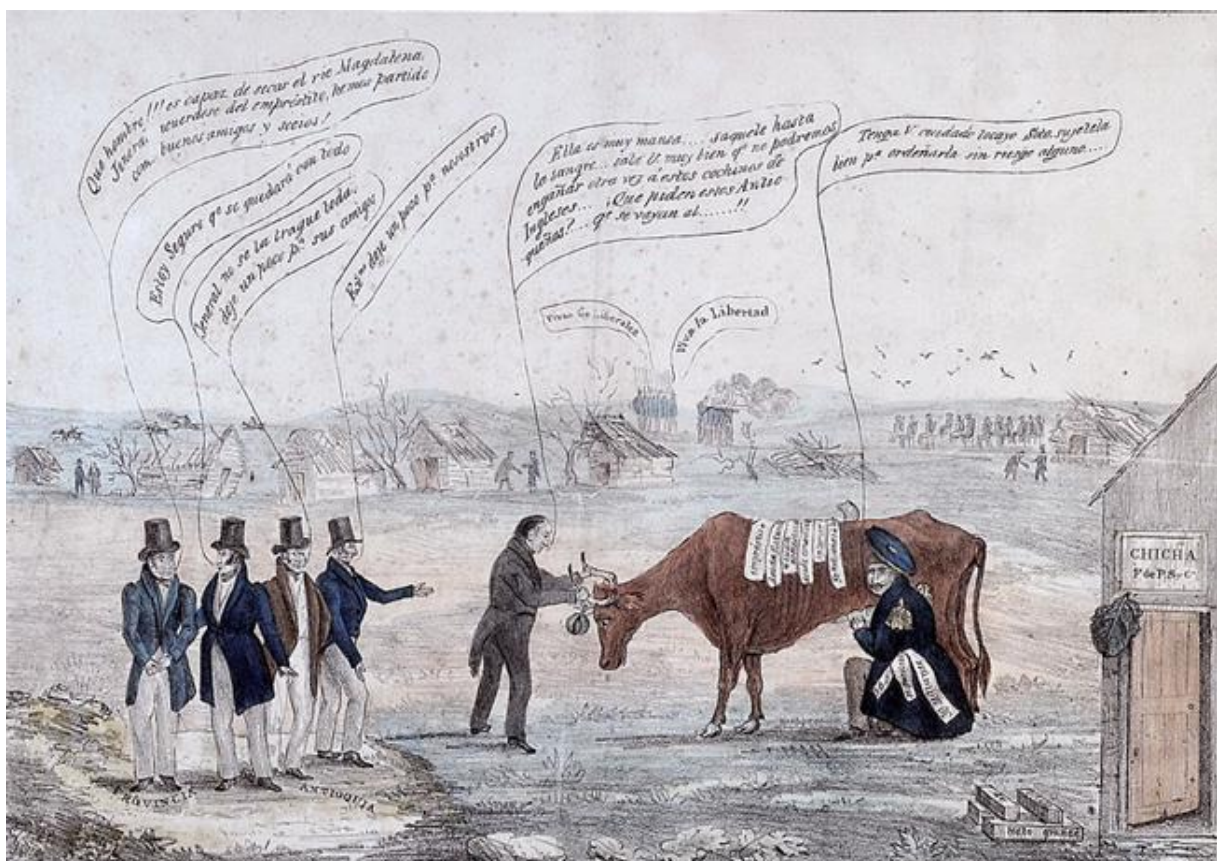 Que hombre!!! es capaz de secar el rio Magdalena.
Señora, acuerdese del empréstito, hemos partido
con buenos amigos y socios!
Estoy Seguro qe. se quedará con todo
General no se la trague toda,
deje un poco pa. sus amigos
Exmo. deje un poco pa. nosotros
Ella es muy mansa... saquele hasta
la sangre... sale V. muy bien qe. no podremos
engañar otra vez á estos cochinos de
Ingleses... ¡Que piden estos Antio-
queños?... qe. se vayan al.......!!
Tenga V. cuidado tocayo Soto, sujetela
bien pa. ordeñarla sin riesgo alguno....
Vivan los Liberales
Viva la Libertad
CHICHA
Pr de P. S. y Ca.
PROVINCIA
ANTIOQUIA
Hato grande